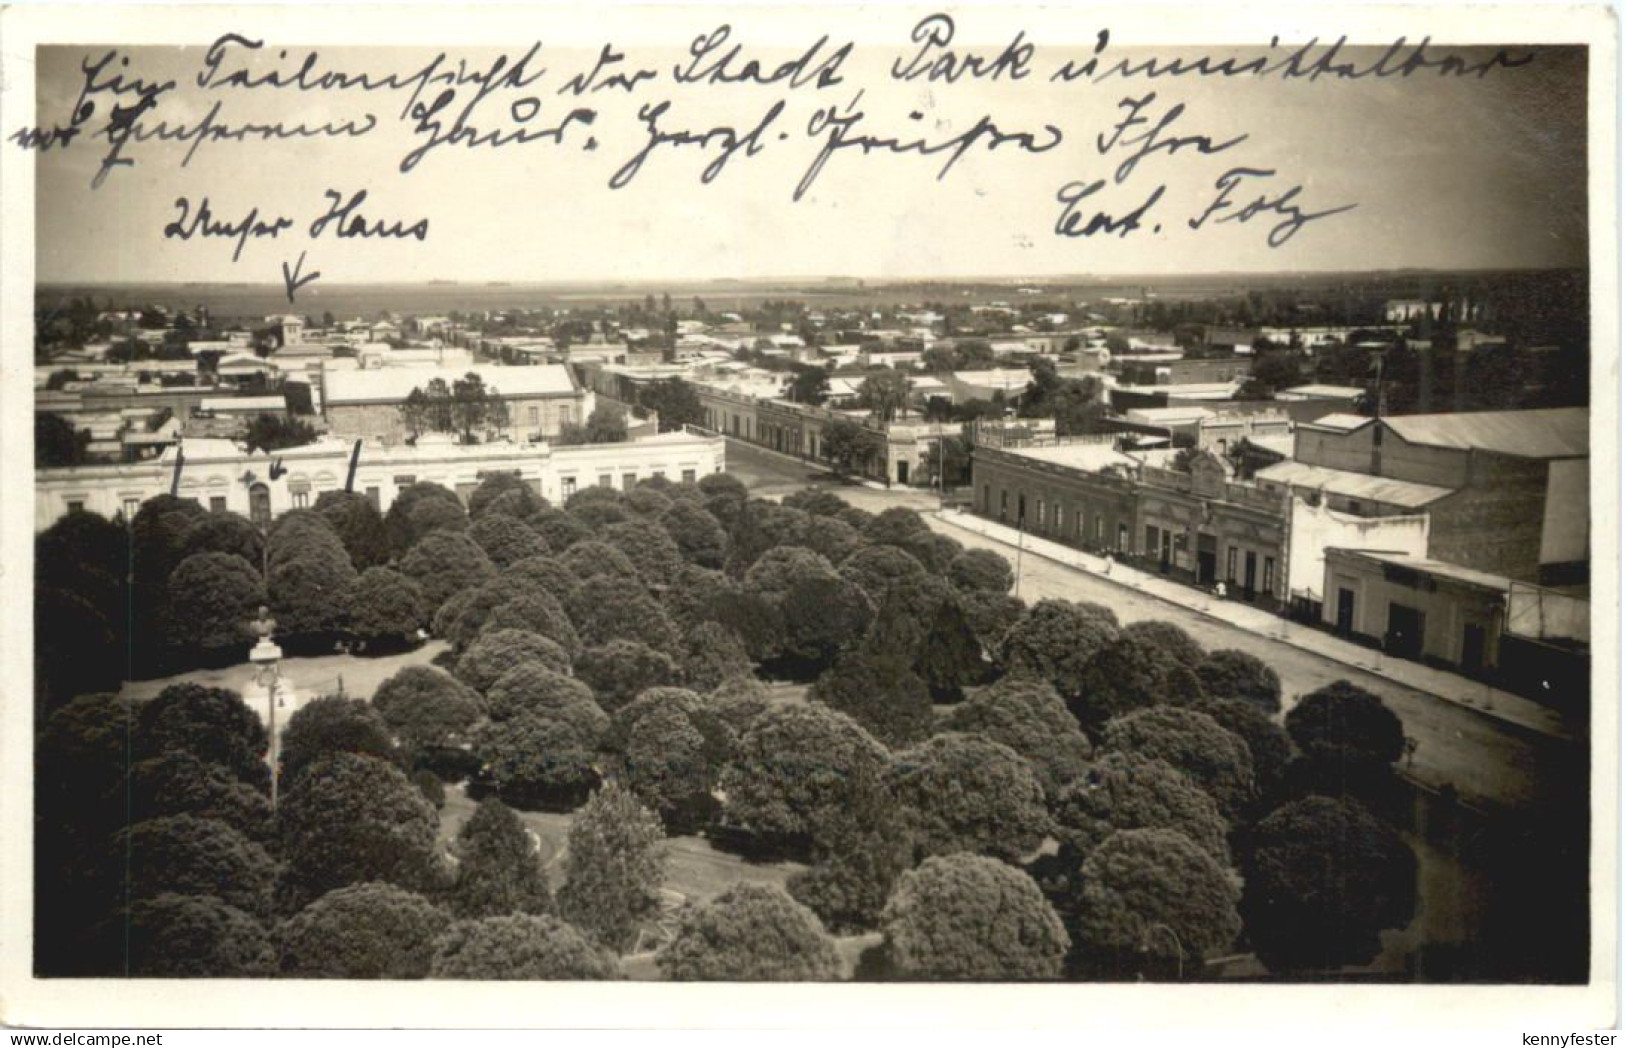 Ein Teilansicht der Stadt, Park unmittelbar
vor Unserem Haus. Herzl. Grüße Ihre
Cat. Folz
Unser Haus
www.delcampe.net
kennyfester